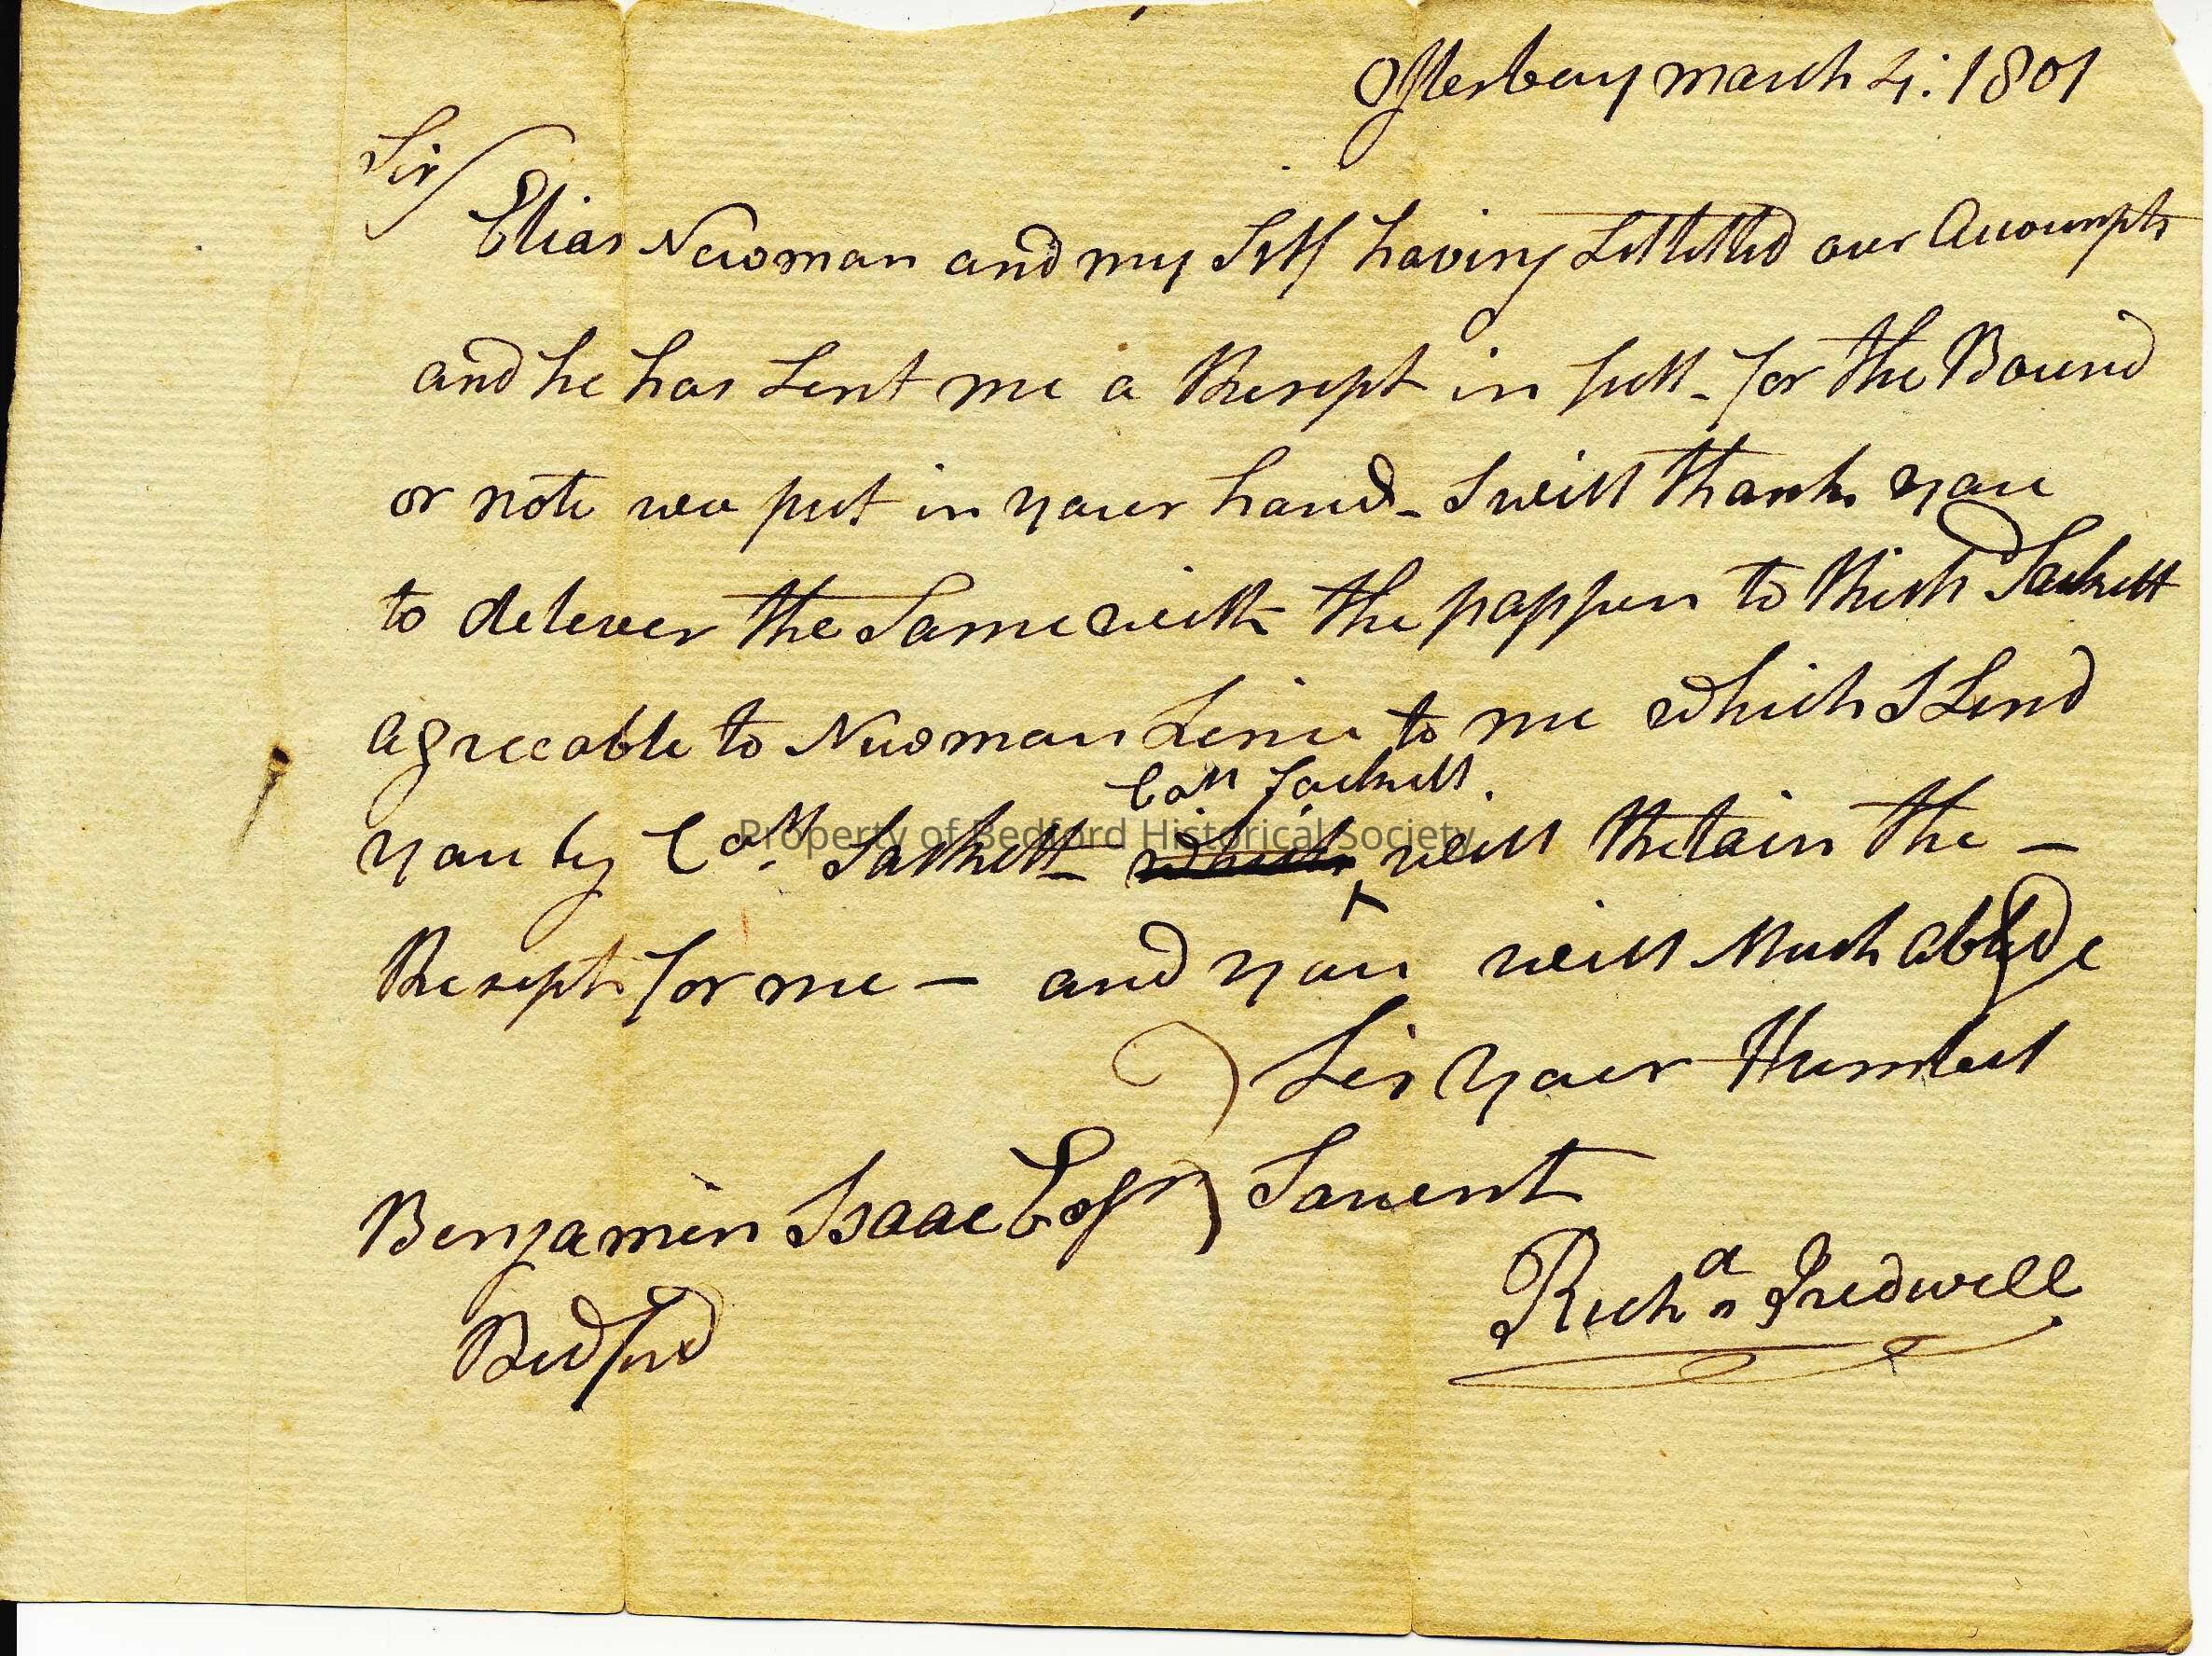 Oysterbay march 4: 1801
Sir/
Elias Newman and my Self having Settelled our Accompts
and he has Sent me a Resept in full - for the Bound
or note we put in your hand - I will thank you
to delever the Same with the pappers to Rich Sackett
agreeable to Newman Line to me which I Send
Coll Sackett
you by Coll. Sackett - which will Retain the -
Resept for me - and you will Much oblige
Sir your Humbel
Benjamin Isaac Esqr } Sarvent
Richd Tredwell
Bedford
Property of Bedford Historical Society